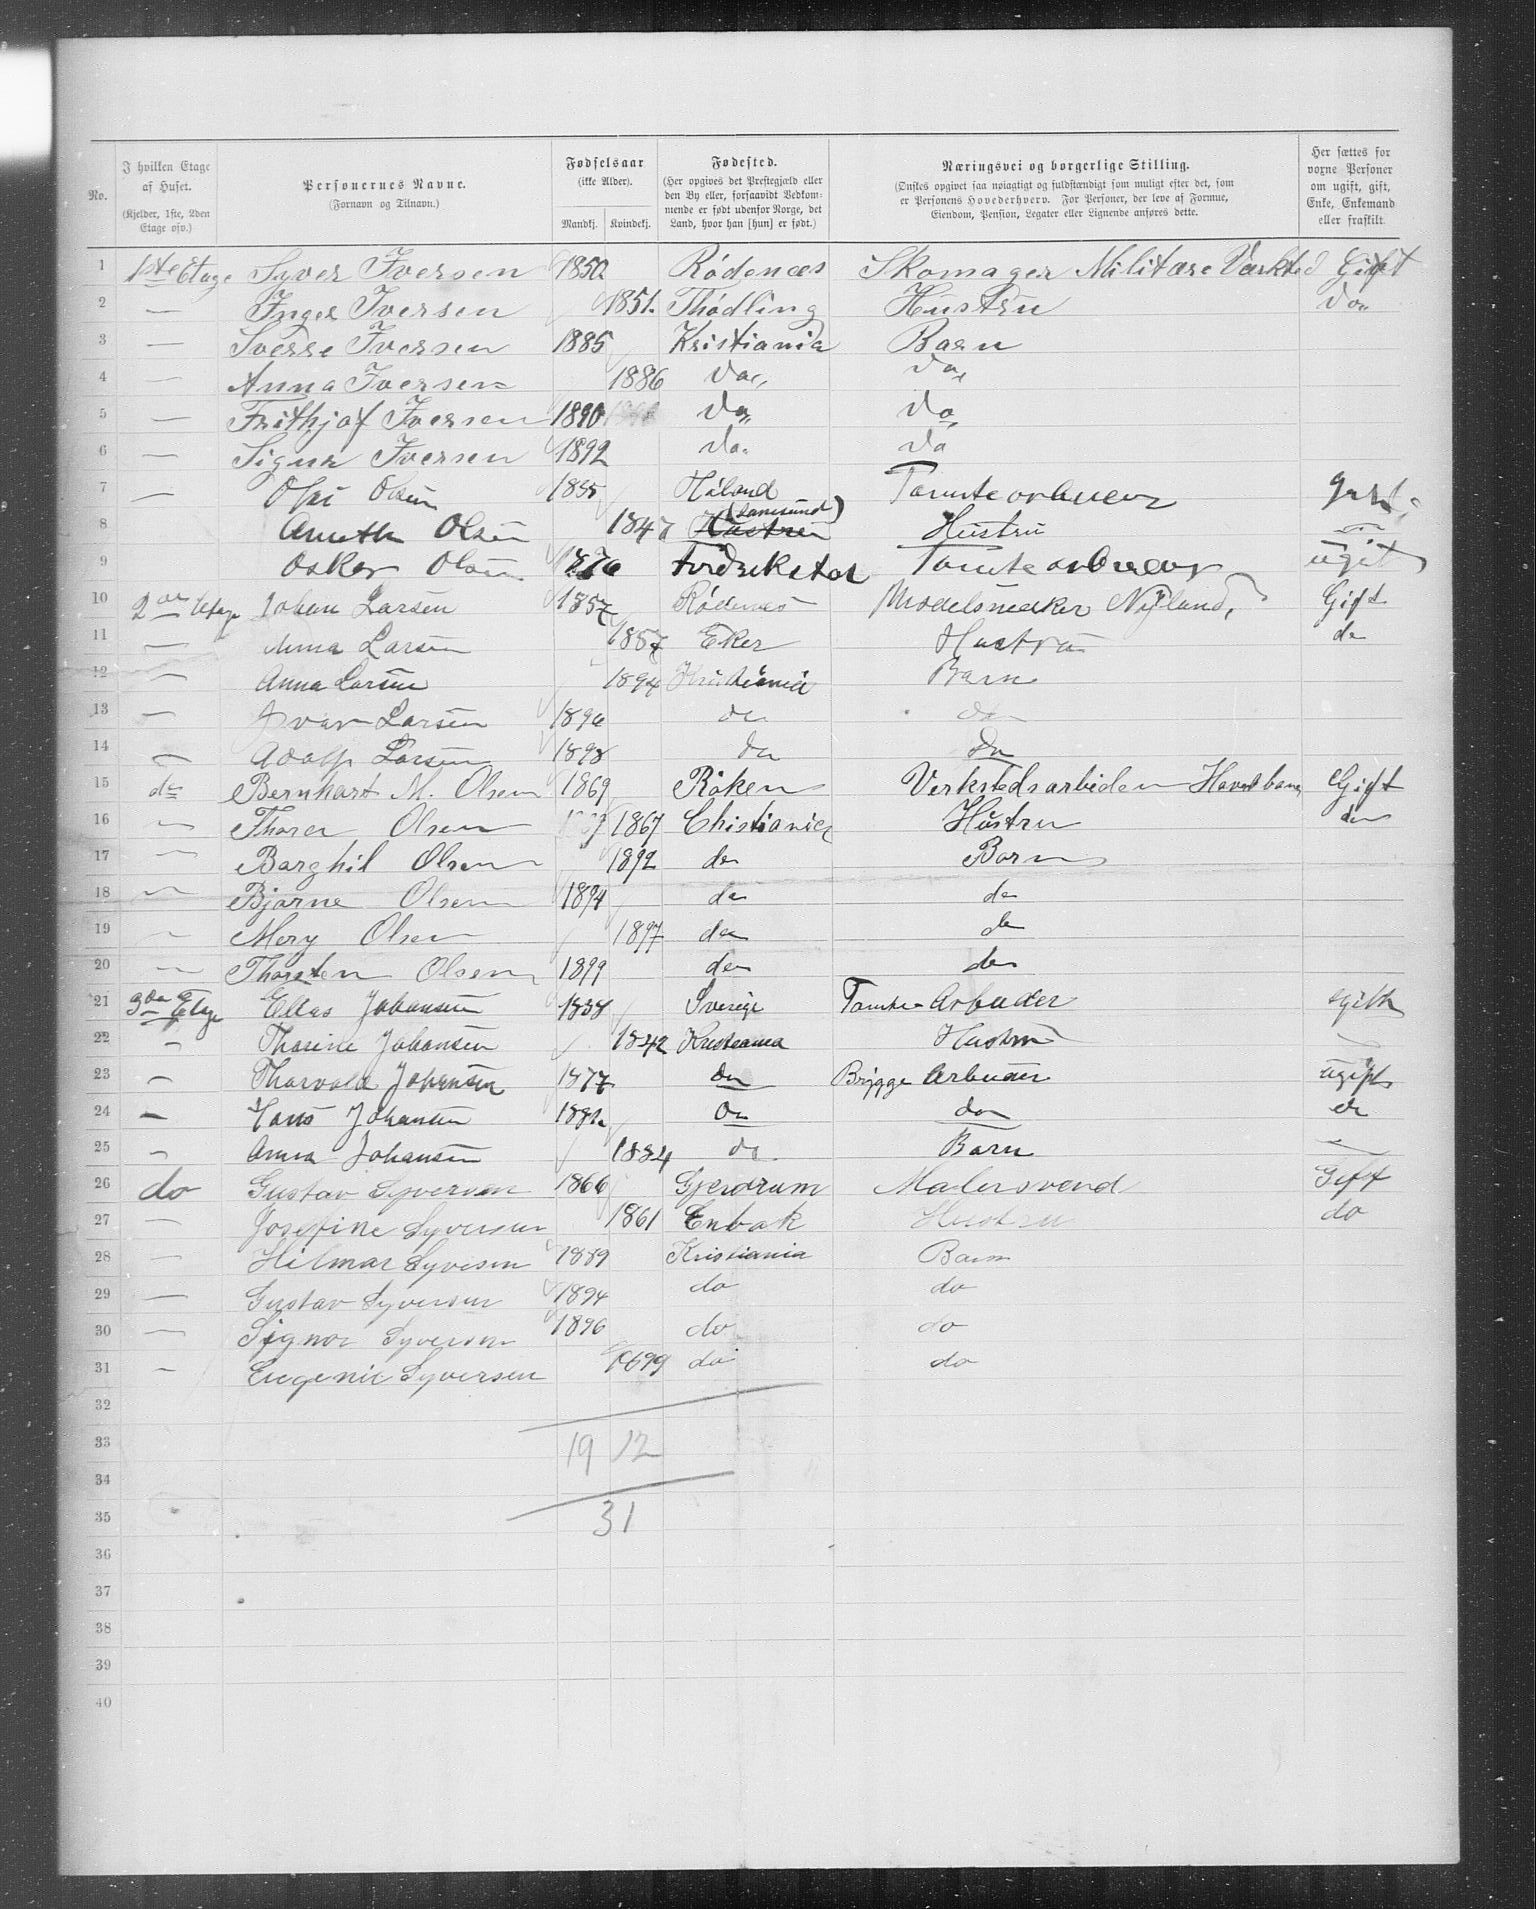 No.	I hvilken Etage af Huset. (Kjelder, 1ste, 2den Etage osv.)	Personernes Navne. (Fornavn og Tilnavn.)	Fødselsaar (ikke Alder). Mandkj. Kvindekj.	Fødested. (Her opgives det Prestegjæld eller den By eller, forsaavidt Vedkommende er født udenfor Norge, det Land, hvor han [hun] er født.)	Næringsvei og borgerlige Stilling. (Ønskes opgivet saa nøiagtigt og fuldstændigt som muligt efter det, som er Personens Hovederhverv. For Personer, der leve af Formue, Eiendom, Pension, Legater eller Lignende anføres dette.)	Her sættes for voxne Personer om ugift, gift, Enke, Enkemand eller fraskilt.
1 1ste Etage Syver Iversen 1850 Rødenæs Skomager Militære Værksted Gift
2 — Inger Iversen 1851. Thødling Hustru Do
3 — Sverre Iversen 1885 Kristiania Barn
4 — Anna Iversen 1886 Do Do
5 — Frithjof Iversen 1890 Do Do
6 — Signr Iversen 1892 Do. Do
7 — Olsen 1835 Høland Tomtearbeider gift
8 Olsen 1847 Hustru Hustru
9 Osker Olsen 1876 Fredrikstad Tomtearbeider ugift
10 2den Etage Johan Larsen 1857 Rødenes Modelsnedker Nyland, Gift
11 — Anna Larsen 1857 Eker Hustru do
12 — Anna Larsen 1894 Kristiania Barn
13 — Ivar Larsen 1896 do do
14 — Adolf Larsen 1898 do do
15 do Bernhart M. Olsen 1869 Røken Verkstedsarbeider Hovedbanen Gift
16 — Thora Olsen 1867 Christiania Hustru do
17 — Borghil Olsen 1892 do Barn
18 — Bjarne Olsen 1894 do do
19 — Mery Olsen 1897 do do
20 — Thorsten Olsen 1899 do do
21 3die Etage Elias Johansen 1838 Sverige Tomte-Arbeider gift
22 — Thorine Johansen 1842 Kristiania Hustru
23 — Thorvald Johansen 1877 do Brygge Arbeider ugift
24 — Hans Johansen 1882 do do do
25 — Anna Johansen 1884 do Barn —
26 do Gustav Syversen 1866 Gjerdrum Malersvend Gift
27 — Josefine Syversen 1861 Enbak Hustru do
28 — Hilmar Syvesen 1889 Kristiania Barn
29 — Gustav Syversen 1894 do do
30 — Signor Syversen 1896 do do
31 — Eugenie Syversen 1899 do do
32
33 19 12
34
35 31
36
37
38
39
40